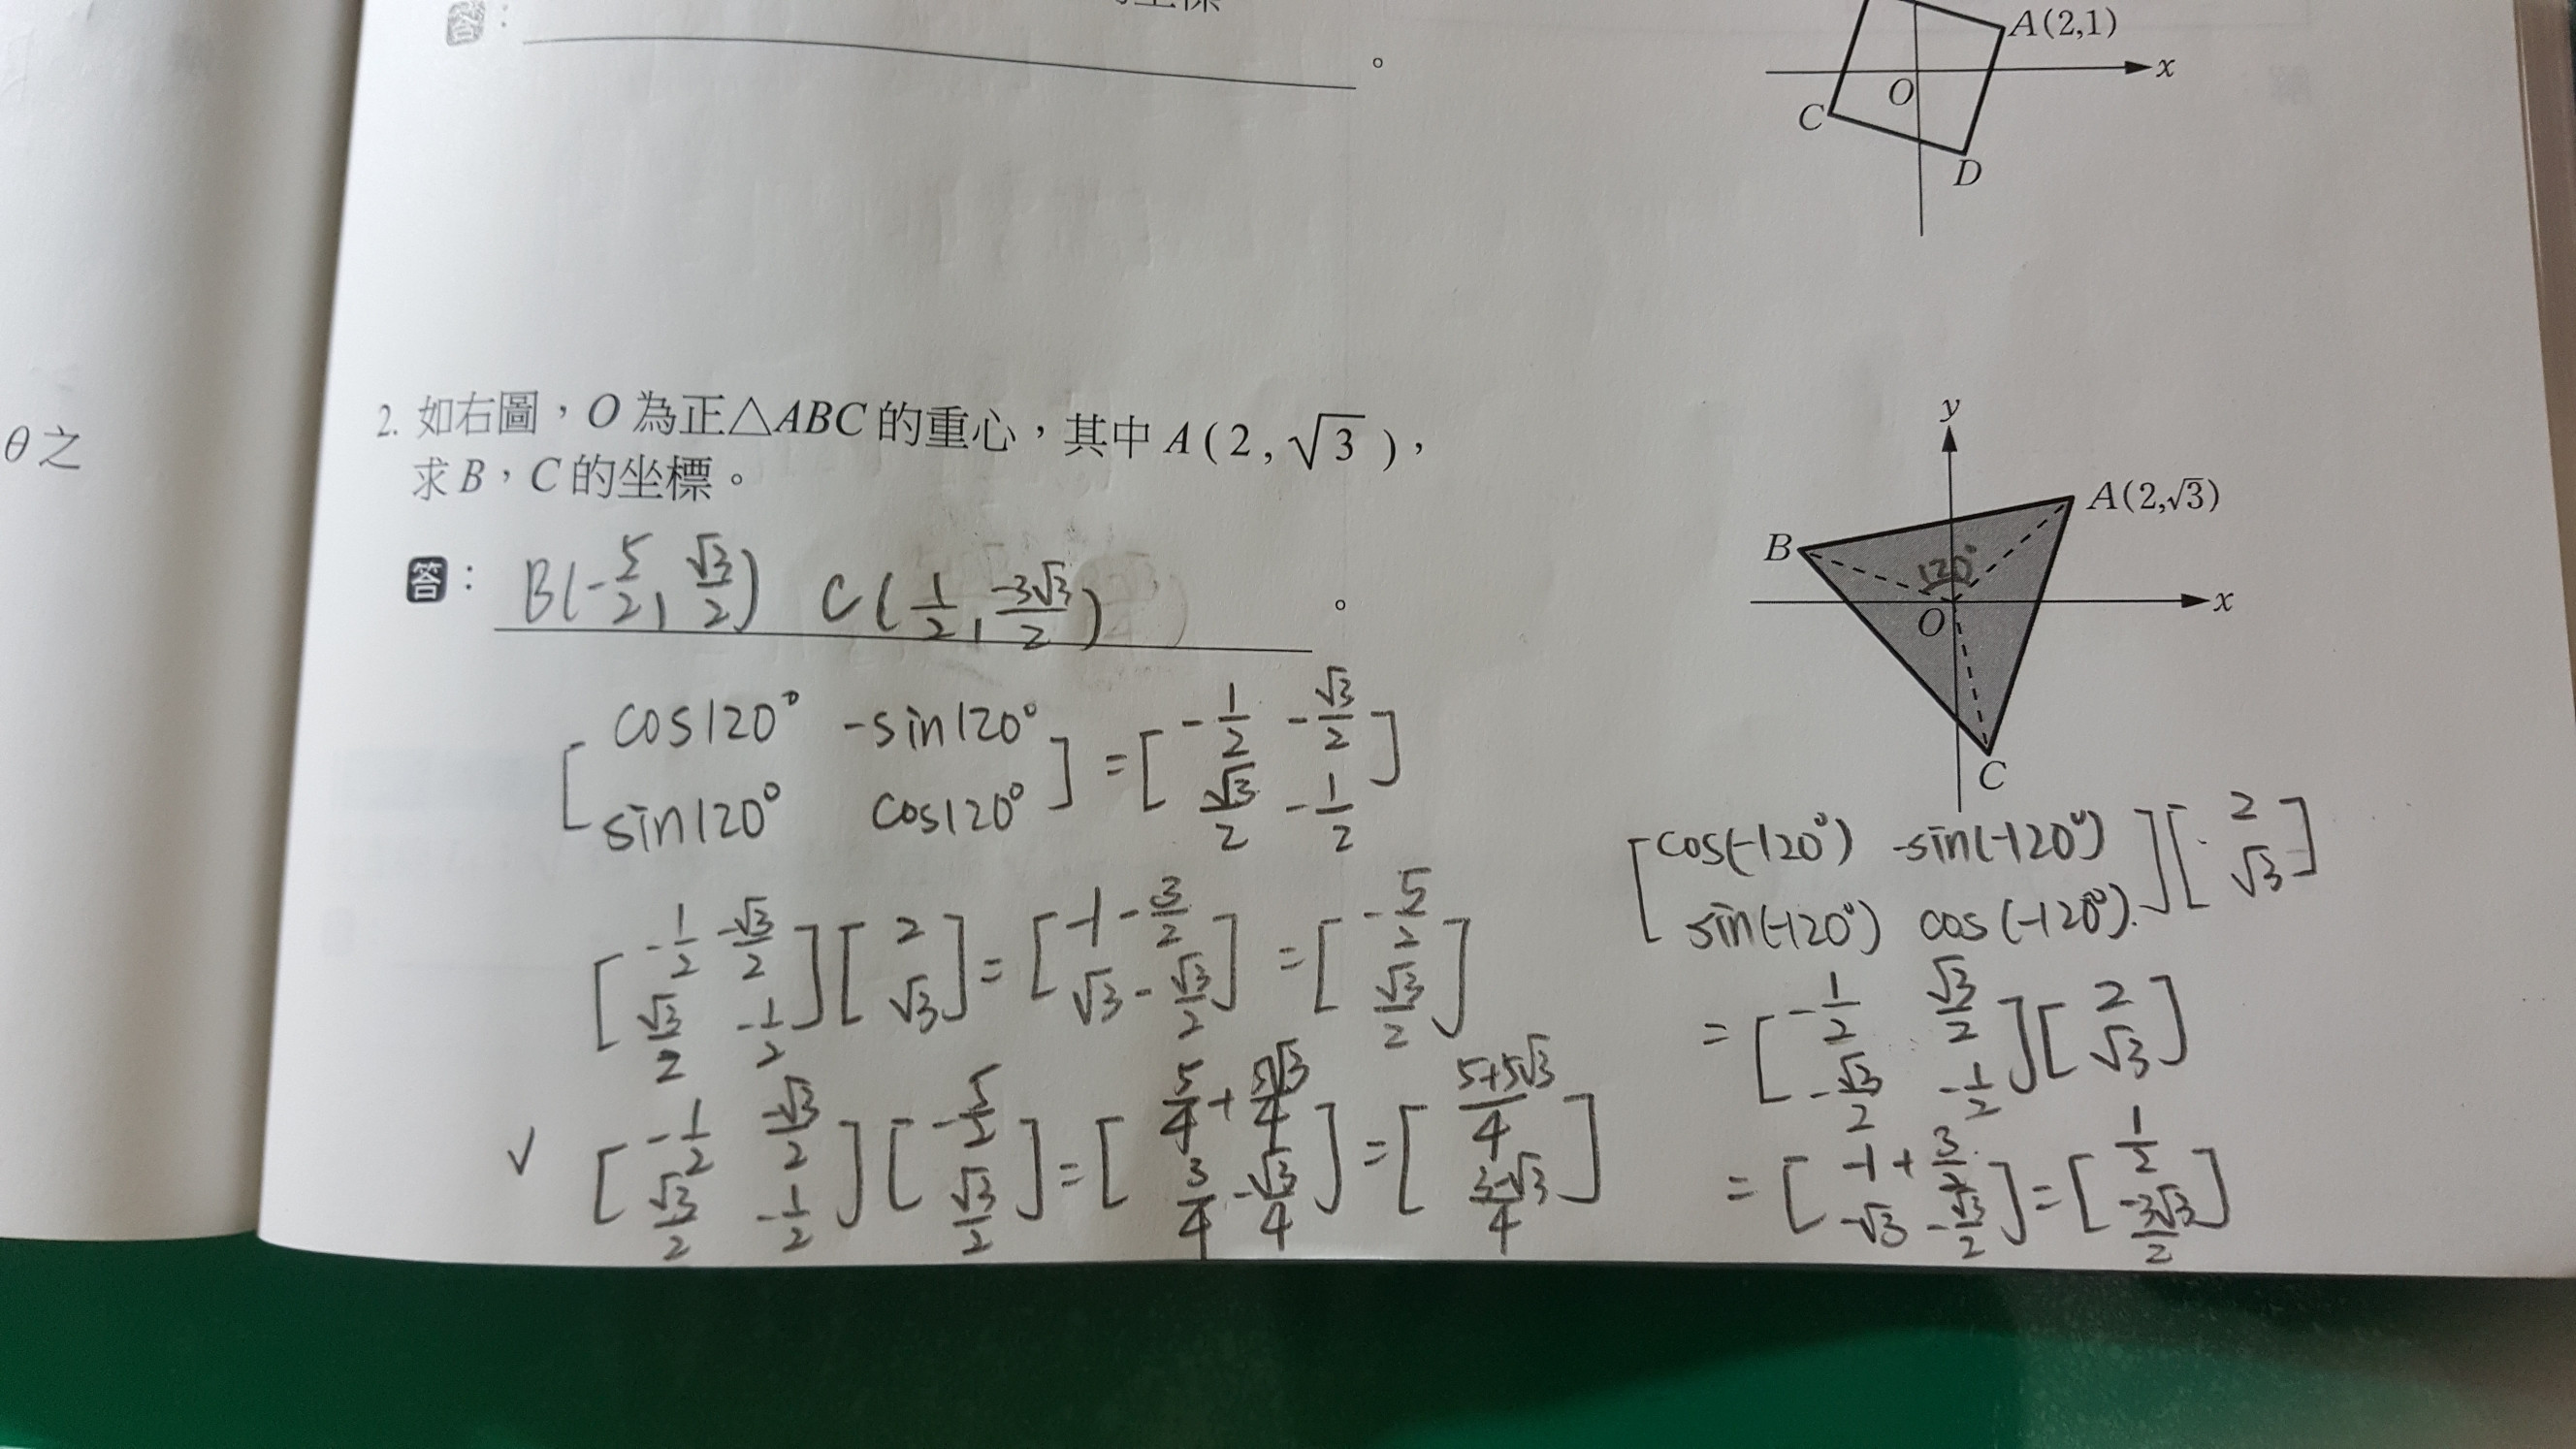 坐標
答：
。
A(2,1)
x
O
C
D
θ之
2. 如右圖，O 為正△ABC 的重心，其中 A(2,√3)，
求 B，C 的坐標。
答： B(-5/2, √3/2) C(1/2, -3√3/2) 。
y
A(2,√3)
B
120°
O
x
C
[cos120° -sin120°
sin120° cos120°] = [-1/2 -√3/2
√3/2 -1/2]
[-1/2 -√3/2
√3/2 -1/2][2
√3] = [-1-3/2
√3-√3/2] = [-5/2
√3/2]
√ [-1/2 -√3/2
√3/2 -1/2][-5/2
√3/2] = [5/4+5√3/4
3/4-√3/4] = [5+5√3/4
3-√3/4]
[cos(-120°) -sin(-120°)
sin(-120°) cos(-120°)][2
√3]
= [-1/2 √3/2
-√3/2 -1/2][2
√3]
= [-1+3/2
-√3-√3/2] = [1/2
-3√3/2]